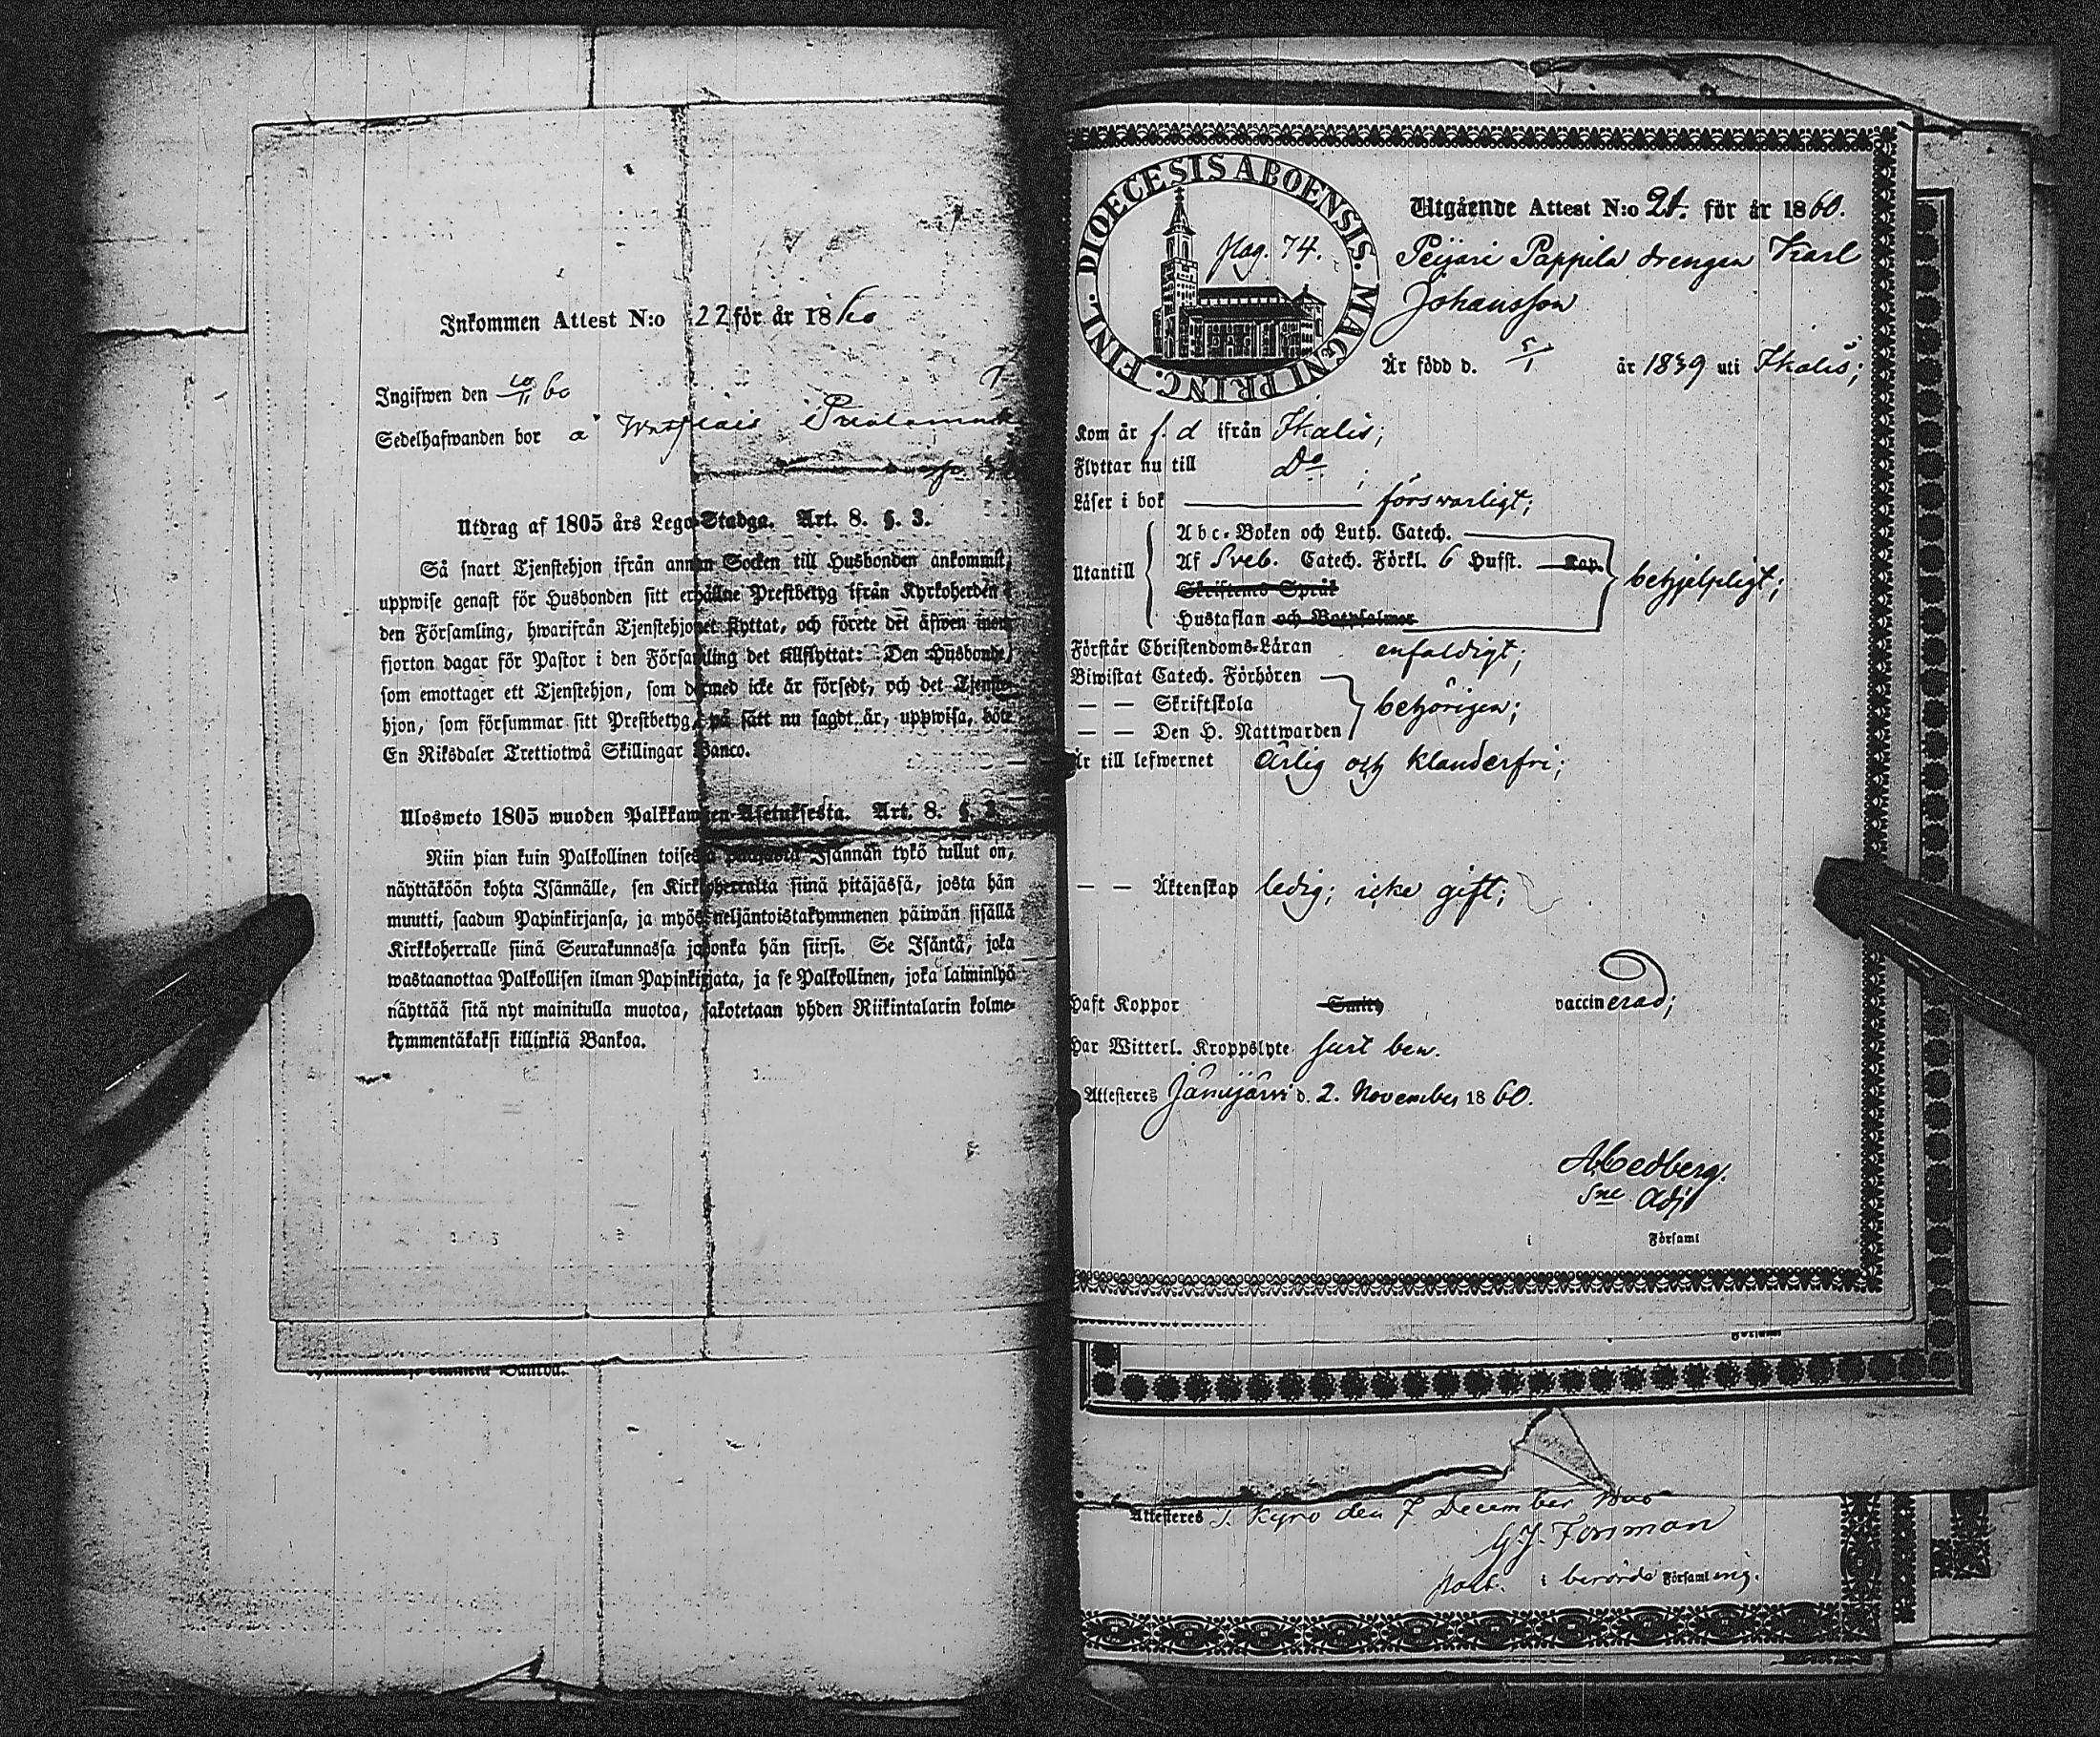 Inkommen Attest N:o 22 för år 1860
Ingifwen den 10/11 60
Sedelhafwanden bor å
Utdrag af 1805 års Lego-Stadga. Art. 8. §. 3.
Så snart Tjenstehjon ifrån annan Socken till Husbonden ankommit,
uppwise genast för Husbonden sitt erhållne Prestbetyg ifrån Kyrkoherden i
den Församling, hwarifrån Tjenstehjonet flyttat, och förete det äfwen inom
fjorton dagar för Pastor i den Församling det tillflyttat: Den Husbonde,
som emottager ett Tjenstehjon, som dermed icke är försedt, och det Tjenste-
hjon, som försummar sitt Prestbetyg, på sätt nu sagdt är, uppwisa, böte
En Riksdaler Trettiotwå Skillingar Banco.
Ulosweto 1805 wuoden Palkkawäen-Asetuksesta. Art. 8. §. 3.
Niin pian kuin Palkollinen toisesta pitäjästä Isännän tykö tullut on,
näyttäköön kohta Isännälle, sen Kirkkoherralta siinä pitäjässä, josta hän
muutti, saadun Papinkirjansa, ja myös neljäntoistakymmenen päiwän sisällä
Kirkkoherralle siinä Seurakunnassa johonka hän siirsi. Se Isäntä, joka
wastaanottaa Palkollisen ilman Papinkirjata, ja se Palkollinen, joka laiminlyö
näyttää sitä nyt mainitulla muotoa, sakotetaan yhden Riikintalarin kolme-
kymmentäkaksi killinkiä Bankoa.
Bankoa.
DIOECESIS ABOENSIS. MAGNI PRINC. FINL.
pag. 74.
Utgående Attest N:o 21. för år 1860.
Peijari Pappila drengen Karl
Johansson
Är född d. 5/1 år 1839 uti Ikalis;
Kom år f. d ifrån Ikalis;
Flyttar nu till Do ;
Läser i bok försvarligt;
Utantill
Abc-Boken och Luth. Catech.
Af Sveb. Catech. Förkl. 6 Hufst. Kap.
Skriftens Språk
Hustaflan och Botpsalmer
behjelpligt;
Förstår Christendoms-Läran enfaldigt;
Biwistat Catech. Förhören
— — Skriftskola
— — Den H. Nattwarden
behörigen;
Är till lefwernet Ärlig och klanderfri;
— — Äktenskap ledig; icke gift;
Haft Koppor Smitt vaccinerad;
Har Witterl. Kroppslyte
Attesteres Jämijärvi d. 2. November 1860.
A. Cedberg.
Sne Adj
i Församl
Församl
Attesteres T. Kyro den 7 December 1860
G. J. Forsman
past. i berörde Församling.